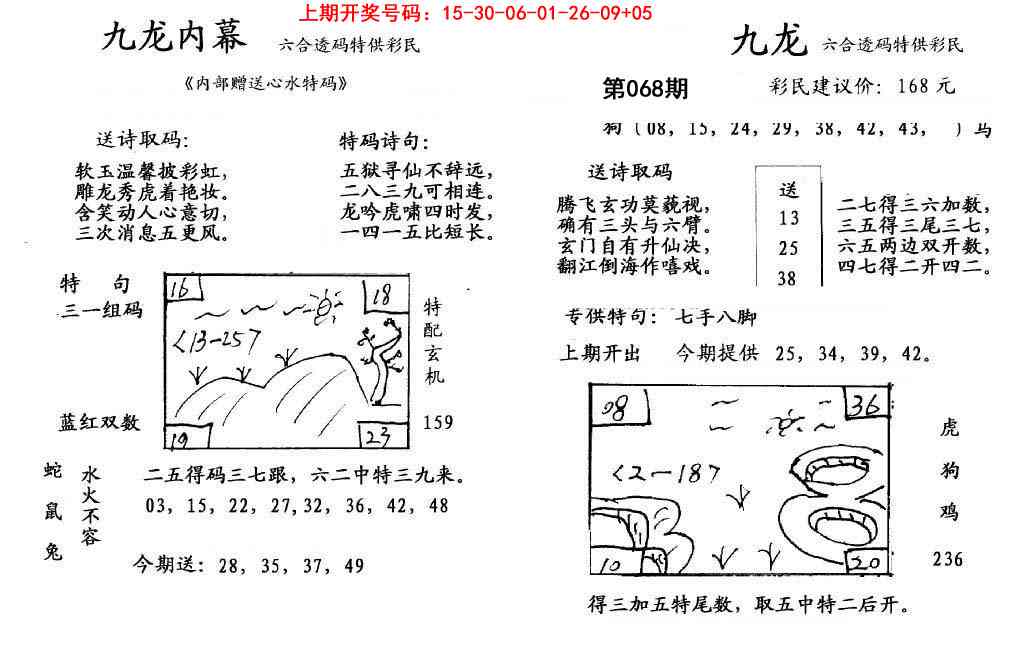 上期开奖号码：15-30-06-01-26-09+05
九龙内幕 六合透码特供彩民
《内部赠送心水特码》
送诗取码：
软玉温馨披彩虹，
雕龙秀虎着艳妆。
含笑动人心意切，
三次消息五更风。
特码诗句：
五狱寻仙不辞远，
二八三九可相连。
龙吟虎啸四时发，
一四一五比短长。
特 句
三一组码
蓝红双数
16
18
<13-25>
19
23
特配玄机
159
蛇
鼠
兔
水火不容
二五得码三七跟，六二中特三九来。
03, 15, 22, 27, 32, 36, 42, 48
今期送：28, 35, 37, 49
九龙 六合透码特供彩民
第068期 彩民建议价：168元
狗（08, 15, 24, 29, 38, 42, 43, ）马
送诗取码
腾飞玄功莫藐视，
确有三头与六臂。
玄门自有升仙决，
翻江倒海作嘻戏。
送
13
25
38
二七得三六加数，
三五得三尾三七，
六五两边双开数，
四七得二开四二。
专供特句：七手八脚
上期开出 今期提供 25, 34, 39, 42。
08
36
<2-18>
10
20
虎
狗
鸡
236
得三加五特尾数，取五中特二后开。